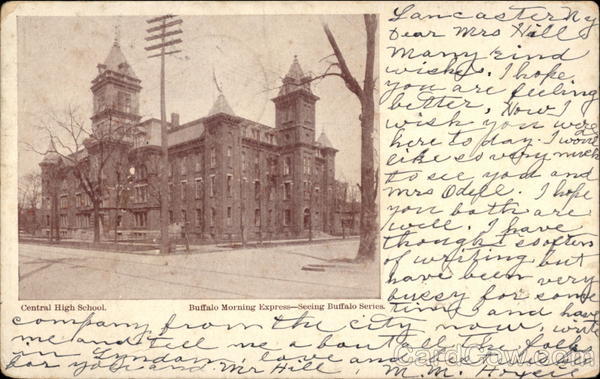 Lancaster Ny
Dear Mrs Hill
Many kind
wishes. I hope
you are feeling
better. Now I
wish you were
here to day. I would
like so very much
to see you and
Mrs Odell. I hope
you both are
well. I have
thought so often
of writing but
have been very
bussy for some
time and have
company from the city now, write
me and tell me about all the folks
in Lyndon, love and
for you and Mr Hill,
M. M.
Central High School.
Buffalo Morning Express—Seeing Buffalo Series.
CardCow.com